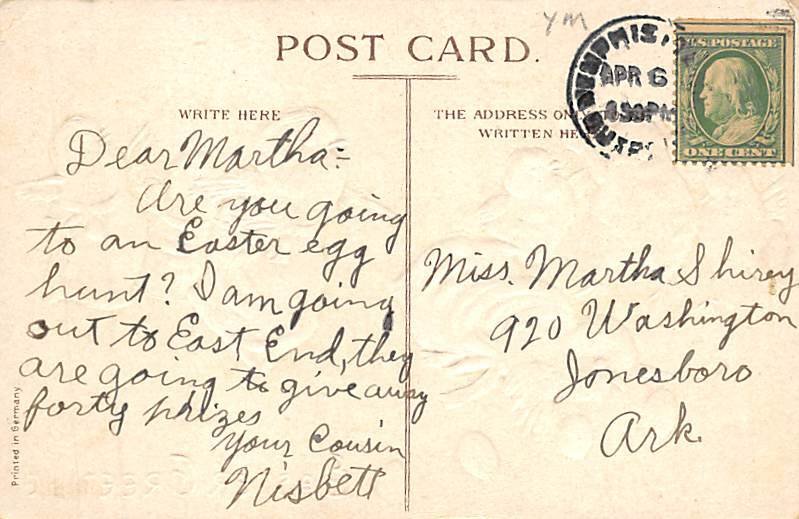 YM
POST CARD.
WRITE HERE
THE ADDRESS
WRITTEN
APR 6
U.S. POSTAGE
ONE CENT
Dear Martha:-
Are you going
to an Easter egg
hunt? I am going
out to East End, they
are going to give away
forty prizes
Your Cousin
Nisbett
Miss. Martha Shirey
920 Washington
Jonesboro
Ark.
Printed in Germany